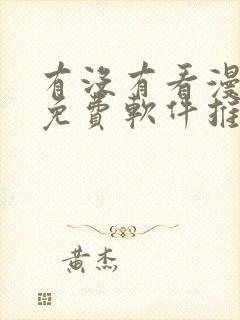 有沒有看漫
免費軟件推
黃杰